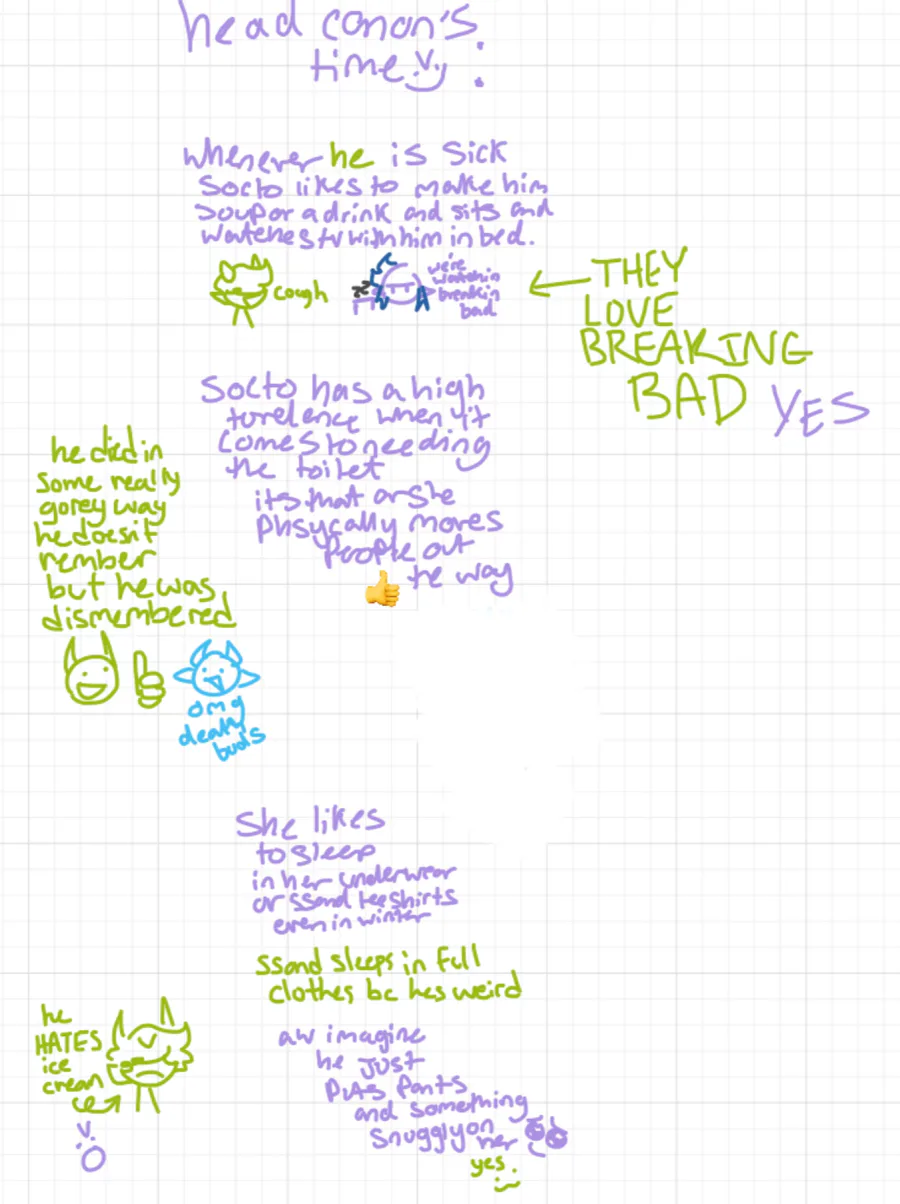 head canon's
time :)
whenever he is sick
Socto likes to make him
soup or a drink and sits and
watches tv with him in bed.
cough
we're
watchin
breakin
bad
THEY
LOVE
BREAKING
BAD YES
Socto has a high
torelence when it
comes to needing
the toilet
its that or she
phsycally moves
people out
the way
👍
he died in
some really
gorey way
he doesn't
rember
but he was
dismembered
omg
death
buds
She likes
to sleep
in her underwear
or ssand tee shirts
even in winter
ssand sleeps in full
clothes bc hes weird
he
HATES
ice
cream
aw imagine
he just
puts pants
and something
snuggly on
her
yes